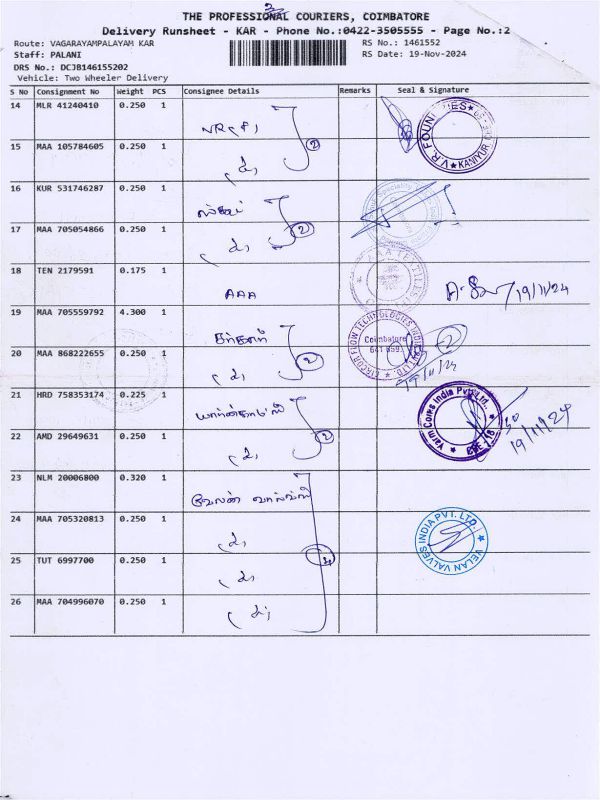 THE PROFESSIONAL COURIERS, COIMBATORE
Delivery Runsheet - KAR - Phone No.:0422-3505555 - Page No.:2
Route: VAGARAYAMPALAYAM KAR
RS No.: 1461552
Staff: PALANI
RS Date: 19-Nov-2024
DRS No.: DCJB146155202
Vehicle: Two Wheeler Delivery
S No Consignment No Weight PCS Consignee Details Remarks Seal & Signature
14 MLR 41240410 0.250 1
V.R. FOUNDRIES
KANIYUR
2
15 MAA 105784605 0.250 1
16 KUR 531746287 0.250 1
2
17 MAA 705054866 0.250 1
18 TEN 2179591 0.175 1
AAA 19/11/24
19 MAA 705559792 4.300 1
Coimbatore
2
20 MAA 868222655 0.250 1
21 HRD 758353174 0.225 1
Yarm Corps India Pvt. Ltd.
CBE-18
19/11/24
2
22 AMD 29649631 0.250 1
23 NLM 20006800 0.320 1
வேலன் வால்வ்ஸ்
24 MAA 705320813 0.250 1
VELAN VALVES INDIA PVT. LTD.
25 TUT 6997700 0.250 1
4
26 MAA 704996070 0.250 1